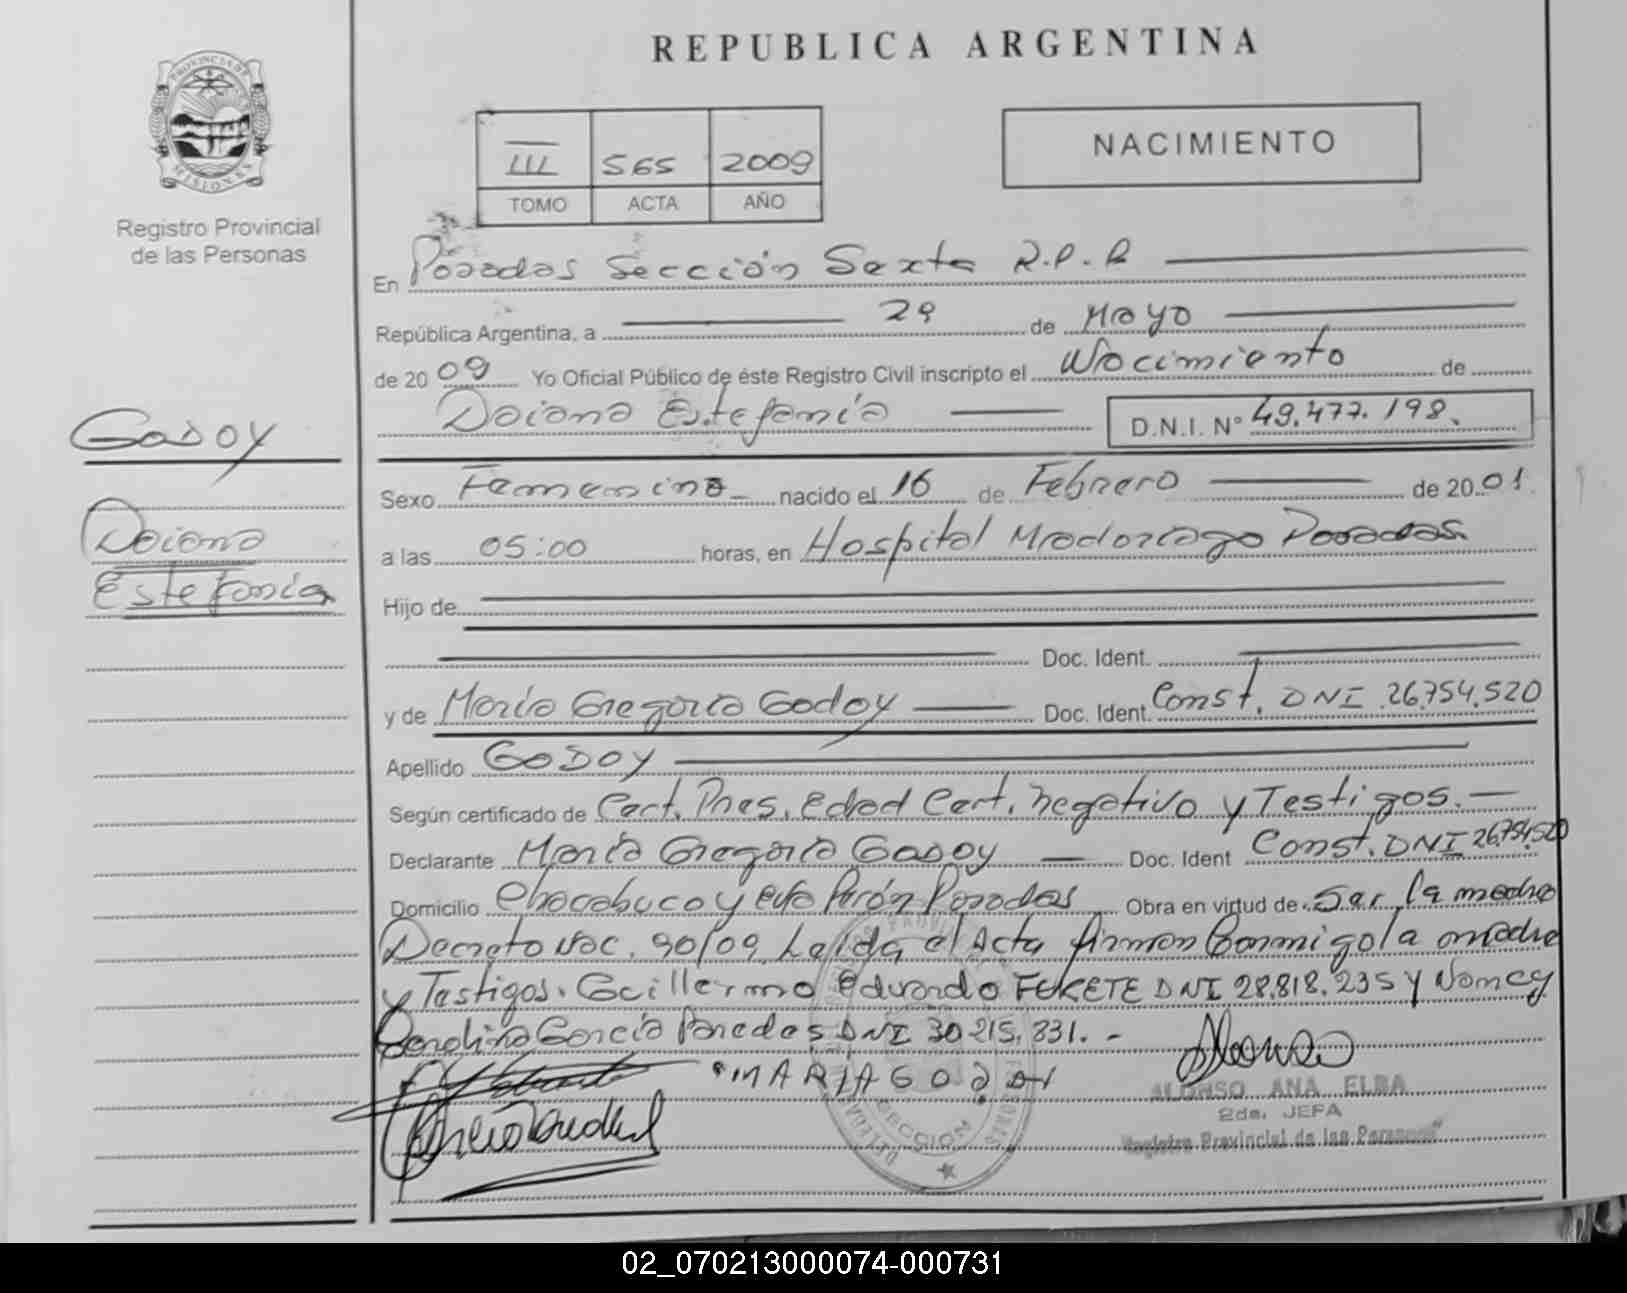 REPUBLICA ARGENTINA
PROVINCIA DE MISIONES
Registro Provincial
de las Personas
III 565 2009
TOMO ACTA AÑO
NACIMIENTO
En Posadas Sección Sexta R.P.P
República Argentina, a 29 de Mayo
de 2009 Yo Oficial Público de éste Registro Civil inscripto el Nacimiento de
Daiana Estefanía D.N.I. Nº 49.477.198.
Godoy
Daiana
Estefanía
Sexo Femenino nacido el 16 de Febrero de 2001
a las 05:00 horas, en Hospital Madariaga Posadas.
Hijo de
Doc. Ident.
y de María Gregoria Godoy Doc. Ident. Const. DNI 26.754.520
Apellido GODOY
Según certificado de Cert. Pres. Edad Cert. negativo y Testigos.
Declarante María Gregoria Godoy Doc. Ident Const. DNI 26.754.520
Domicilio Chacabuco y Eva Perón Posadas Obra en virtud de Ser la madre
Decreto Nac. 90/09. Leída el Acta firman conmigo la madre
y Testigos. Guillermo Eduardo FEKETE DNI 28.818.235 y Nancy
Carolina García Paredes DNI 30.215.831.-
MARIA GODOY
ALONSO ANA ELBA
2da. JEFA
Registro Provincial de las Personas
SECCION
02_070213000074-000731